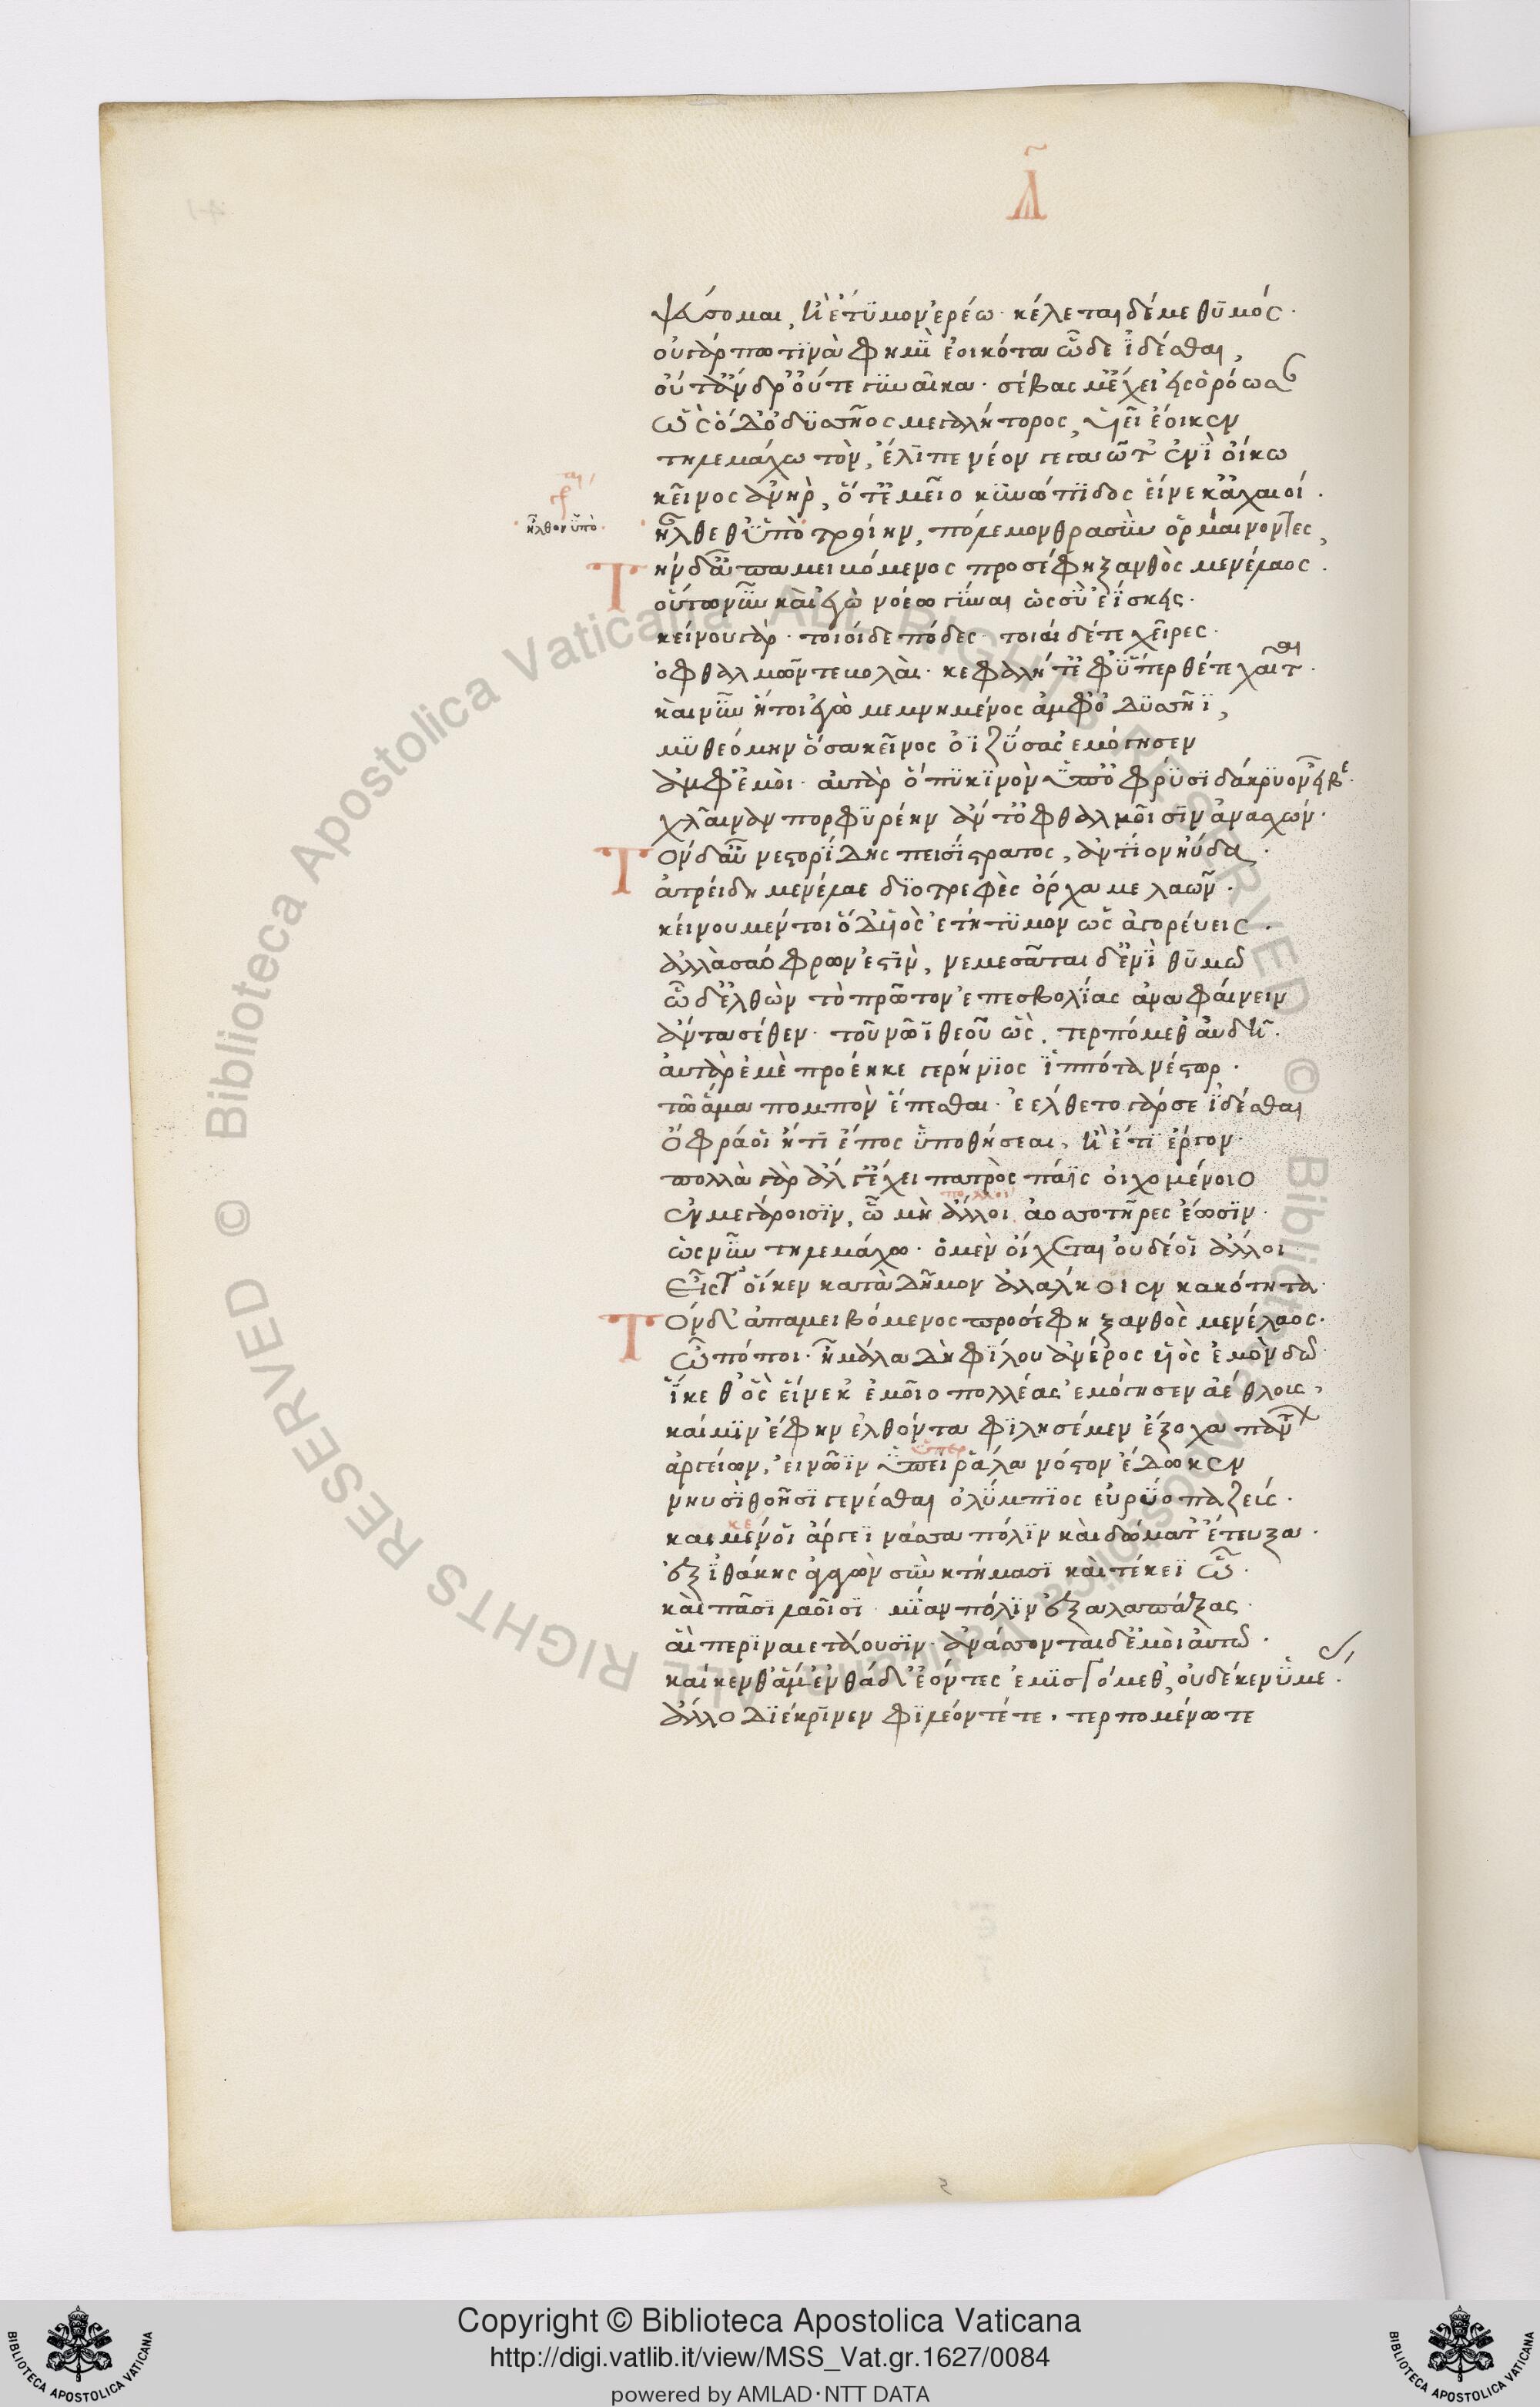 Δ
ψεύσομαι, ἢ ἔτυμον ἐρέω· κέλεται δέ με θυμός.
οὐ γάρ πω τινὰ φημὶ ἐοικότα ὧδε ἰδέσθαι,
οὔτ' ἄνδρ' οὔτε γυναῖκα· σέβας μ' ἔχει εἰσορόωσαν
ὡς ὅδ' ὀδυσσῆος μεγαλήτορος, υἷι ἔοικεν
τηλεμάχω τὸν, ἔλιπε νέον γεγαῶτ' ἐνὶ οἴκω
κεῖνος ἀνὴρ, ὅτ' ἐμεῖο κυνώπιδος εἵνεκ' ἀχαιοί.
ἦλθον ὑπὸ
ἤλθεθ' ὑπὸ τροίην, πόλεμον θρασὺν ὁρμαίνοντες,
Τὴν δ' ἀπαμειβόμενος προσέφη ξανθὸς μενέλαος.
οὕτω νῦν καὶ ἐγὼ νοέω γύναι ὡς σὺ ἐΐσκεις.
κείνου γὰρ· τοιοίδε πόδες· τοιαίδέ τε χεῖρες.
ὀφθαλμῶν τε βολαὶ· κεφαλή τ' ἐφύπερθέ τε χαῖται.
καὶ νῦν ἤτοι ἐγὼ μεμνημένος ἀμφ' ὀδυσσῆϊ,
μυθεόμην ὅσα κεῖνος ὀϊζύσας ἐμόγησεν
ἀμφ' ἐμοὶ· αὐτὰρ ὃ πυκινὸν ὑπ' ὀφρύσι δάκρυον εἶβε.
χλαῖναν πορφυρέην ἄντ' ὀφθαλμοῖσιν ἀνασχών.
Τὸν δ' αὖ νεστορίδης πεισίστρατος, ἀντίον ηὔδα.
ἀτρείδη μενέλαε διοτρεφὲς ὄρχαμε λαῶν.
κείνου μέν τοι ὅδ' υἱὸς ἐτήτυμον ὡς ἀγορεύεις.
ἀλλὰ σαόφρων ἐστὶν, νεμεσσᾶται δ' ἐνὶ θυμῶ
ὧδ' ἐλθὼν τὸ πρῶτον ἐπεσβολίας ἀναφαίνειν
ἄντα σέθεν· τοῦ νῶϊ θεοῦ ὣς, τερπόμεθ' αὐδῆ.
αὐτὰρ ἐμὲ προέηκε γερήνιος ἱππότα νέστωρ.
τῶ ἅμα πομπὸν ἕπεσθαι· ἐέλδετο γάρ σε ἰδέσθαι
ὄφρά οἱ ἤτι ἔπος ὑποθήσεαι, ἠὲ τι ἔργον·
πολλὰ γὰρ ἄλγε' ἔχει πατρὸς πάϊς οἰχομένοιο
πολλοὶ
ἐν μεγάροισιν, ὧ μὴ ἄλλοι ἀοσσητῆρες ἔωσιν.
ὡς νῦν τηλεμάχω· ὁ μὲν οἴχεται οὐδέ οἱ ἄλλοι
εἴς' οἵ κεν κατὰ δῆμον ἀλάλκοιεν κακότητα.
Τὸν δ' ἀπαμειβόμενος προσέφη ξανθὸς μενέλαος.
ὢ πόποι· ἦ μάλα δὴ φίλου ἀνέρος υἱὸς ἐμὸν δῶ
ἵκεθ' ὃς εἵνεκ' ἐμοῖο πολλέας ἐμόγησεν ἀέθλους,
καί μιν ἔφην ἐλθόντα φιλησέμεν ἔξοχα πάντων
ὑπὲρ
ἀργείων, εἰ νῶϊν ὑπεὶρ ἅλα νόστον ἔδωκεν
νηυσὶ θοῇσι γενέσθαι ὀλύμπιος εὐρύοπα ζεύς.
κε
καὶ μέν οἱ ἄργεϊ νάσσα πόλιν καὶ δώματ' ἔτευξα.
ἐξ ἰθάκης ἀγαγὼν σὺν κτήμασι καὶ τέκεϊ ὧ.
καὶ πᾶσι λαοῖσι· μίαν πόλιν ἐξαλαπάξας.
αἳ περιναιετάουσιν· ἀνάσσονται δ' ἐμοὶ αὐτῶ.
καί κε θάμ' ἐνθάδ' ἐόντες ἐμισγόμεθ', οὐδέ κεν ὔμμε.
ἄλλο διέκρινεν φιλέοντέ τε· τερπομένω τε
Copyright © Biblioteca Apostolica Vaticana
http://digi.vatlib.it/view/MSS_Vat.gr.1627/0084
powered by AMLAD·NTT DATA